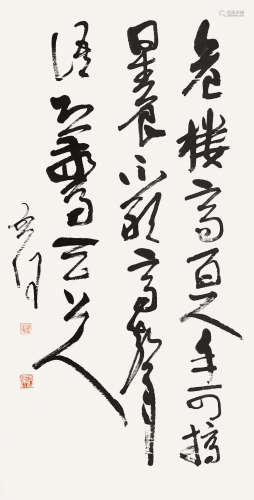 危樓高百尺手可摘
星辰不敢高聲
語恐驚天上人